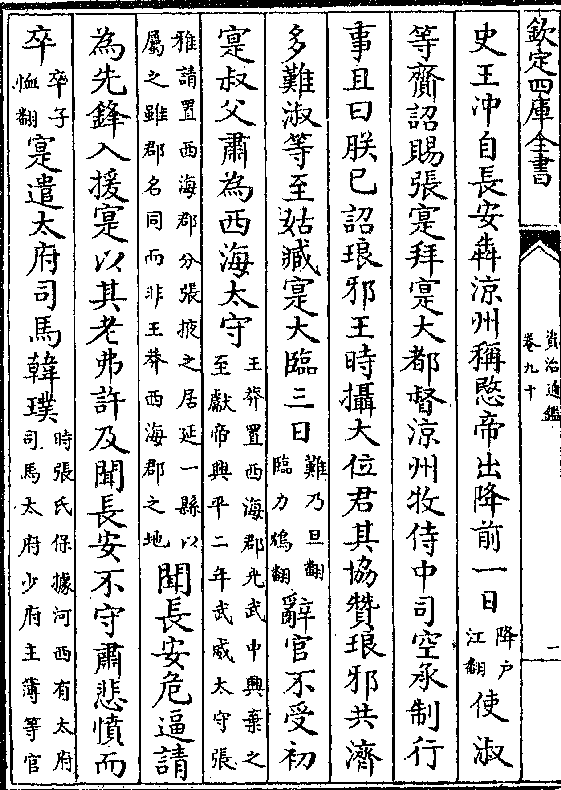 欽定四庫全書
資治通鑑
卷九十
二
史王冲自長安犇涼州稱愍帝出降前一日
降户
江翻
使淑
等齎詔賜張寔拜寔大都督涼州牧侍中司空承制行
事且曰朕已詔琅邪王時攝大位君其協贊琅邪共濟
多難淑等至姑臧寔大臨三日
難乃旦翻
臨力鴆翻
辭官不受初
寔叔父肅為西海太守
王莽置西海郡光武中興棄之
至獻帝興平二年武威太守張
雅請置西海郡分張掖之居延一縣以
屬之雖郡名同而非王莽西海郡之地
聞長安危逼請
為先鋒入援寔以其老弗許及聞長安不守肅悲憤而
卒
卒子
恤翻
寔遣太府司馬韓璞
時張氏保據河西有太府
司馬太府少府主簿等官